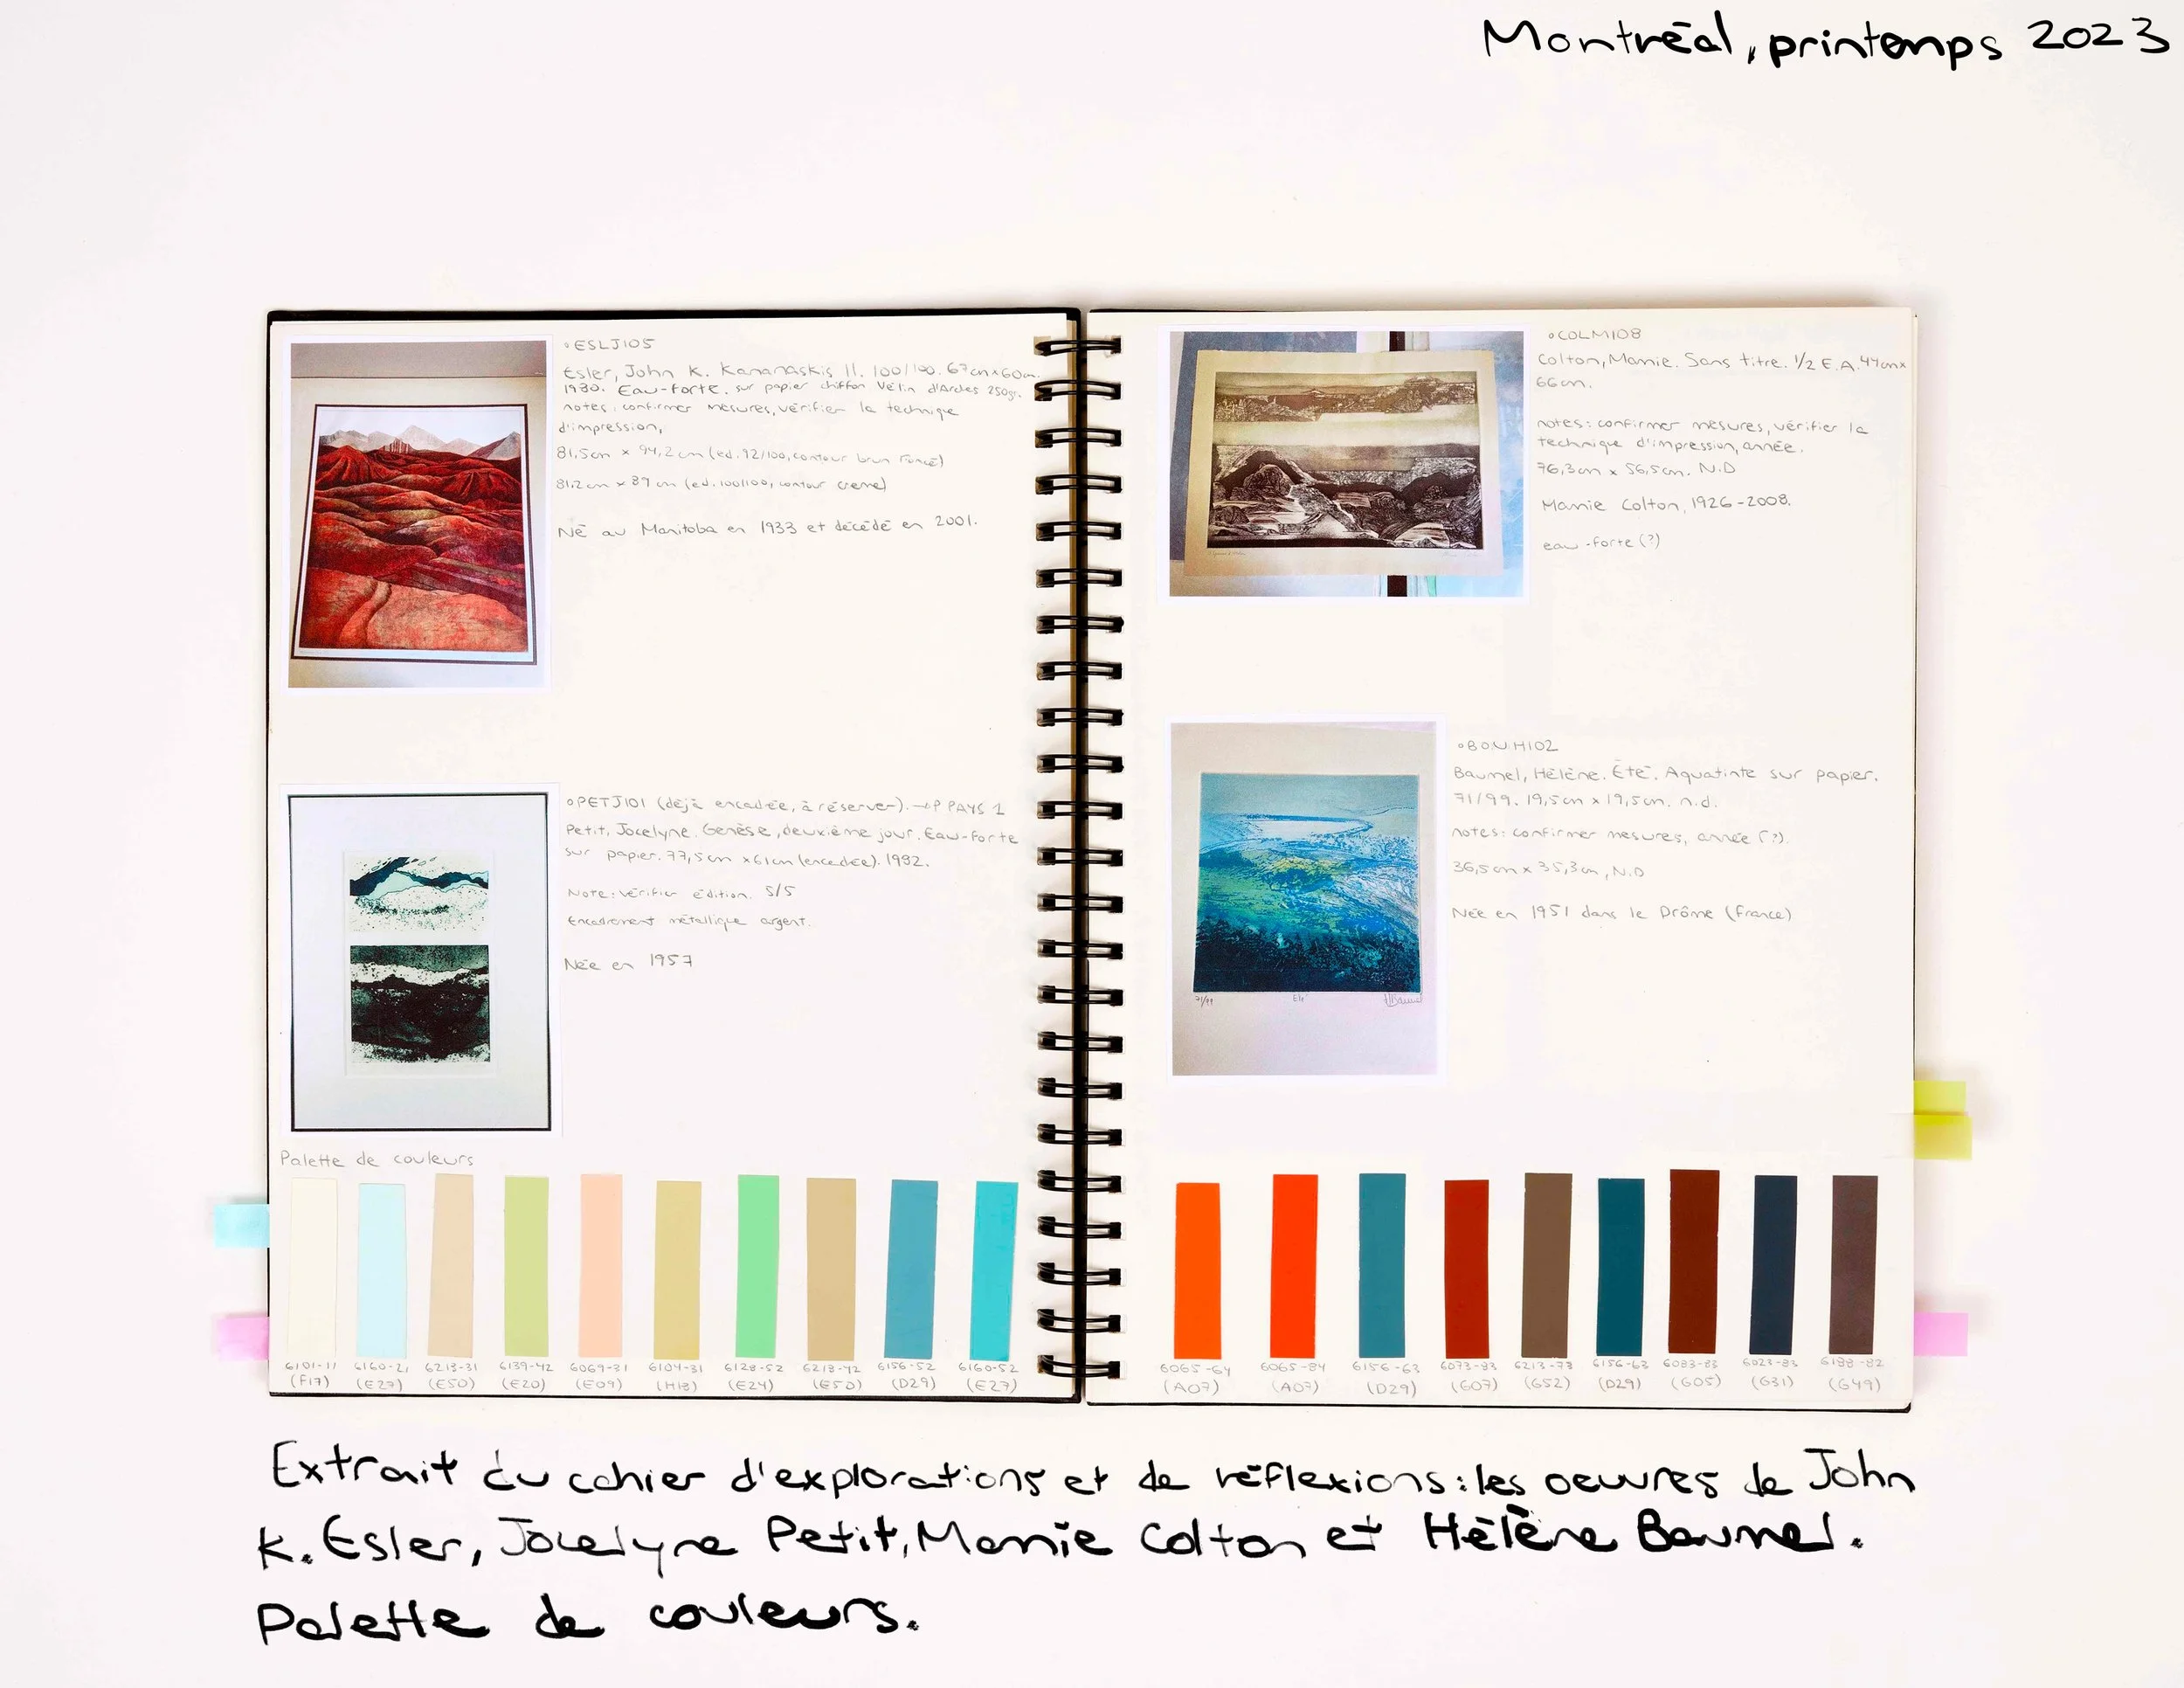 Montréal, printemps 2023
°ESLJ105
Esler, John K. Kananaskis II. 100/100. 67cm x 60cm.
1980. Eau-forte. sur papier chiffon. Vélin d'Arches 250gr.
notes: confirmer mesures, vérifier la technique
d'impression,
81,5cm x 94,2cm (ed. 92/100, contour brun foncé)
81.2cm x 89 cm (ed. 100/100, contour creme)
Né au Manitoba en 1933 et décédé en 2001.
°PETJ101 (déjà encadrée, à réserver). → P. PAYS 1
Petit, Jocelyne. Genèse, deuxième jour. Eau-forte
sur papier. 77,5cm x 61cm (encadrée). 1982.
Note: vérifier édition. 5/5
Encadrement métallique argent.
Née en 1957
Palette de couleurs
6101-11 6160-21 6218-31 6139-42 6069-31 6104-31 6128-52 6218-42 6156-52 6160-52
(F17) (E27) (E50) (E20) (E09) (H13) (E24) (E50) (D29) (E27)
°COLM108
Colton, Mamie. Sans titre. 1/2 E.A. 44cm x
66cm.
notes: confirmer mesures, vérifier la
technique d'impression, année.
76,3cm x 56,5cm. N.D
Mamie Colton, 1926-2008.
eau-forte (?)
°BAUH102
Baumel, Hélène. Été. Aquatinte sur papier.
71/99. 19,5cm x 19,5cm. n.d.
notes: confirmer mesures, année (?).
36,5cm x 35,3cm, N.D
Née en 1951 dans le Drôme (France)
71/99 Eté HBaumel
6065-64 6065-84 6156-63 6073-83 6213-73 6156-63 6083-83 6023-83 6198-82
(A07) (A07) (D29) (G07) (G52) (D29) (G05) (G31) (G49)
Extrait du cahier d'explorations et de réflexions: les oeuvres de John
K. Esler, Jocelyne Petit, Mamie Colton et Hélène Baumel.
Palette de couleurs.